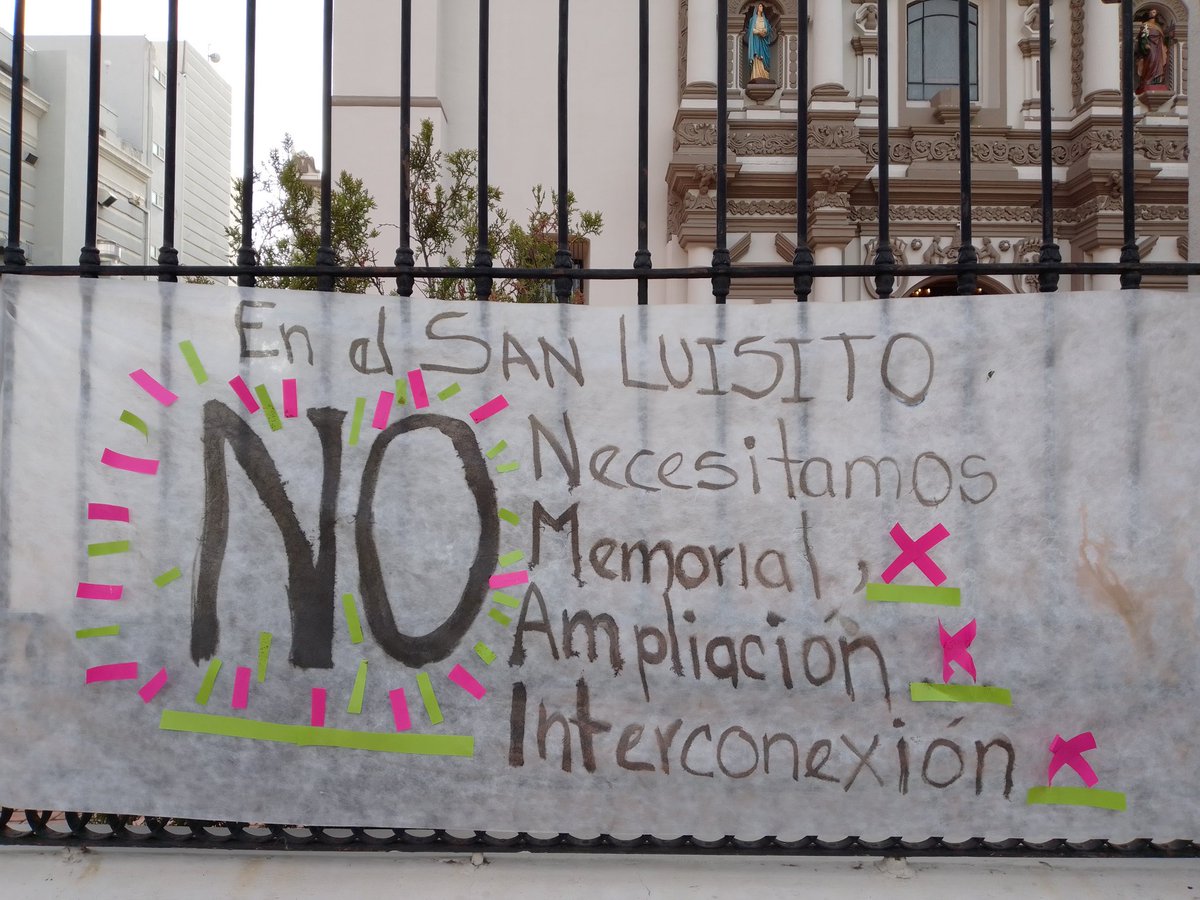 En el SAN LUISITO
NO
Necesitamos
Memorial,
Ampliación
Interconexión